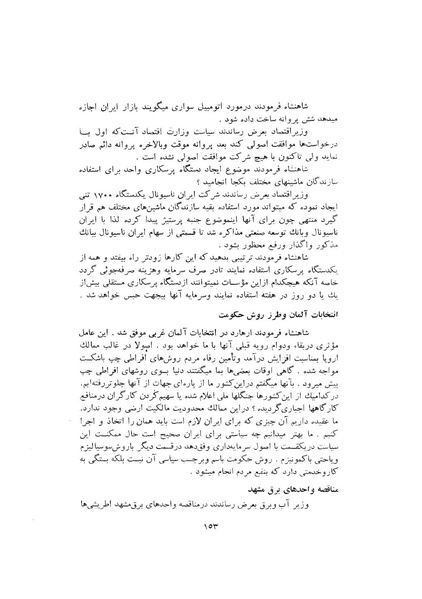 شاهنشاه فرمودند درمورد اتومبیل سواری میگویند بازار ایران اجازه
میدهد شش پروانه ساخت داده شود .
وزیراقتصاد بعرض رساندند سیاست وزارت اقتصاد آنست‌که اول بسا
درخواستها موافقت اصولی کند بعد پروانه موقت وبالاخره پروانه دائم صادر
نماید ولی تاکنون با هیچ شرکت موافقت اصولی نشده است .
شاهنشاه فرمودند موضوع ایجاد دستگاه پرسکاری واحد برای استفاده
سازندگان ماشینهای مختلف بکجا انجامید ؟
وزیراقتصاد بعرض رساندند شرکت ایران ناسیونال یکدستگاه ۱۷۰۰ تنی
ایجاد نموده که میتواند مورد استفاده بقیه سازندگان ماشین‌های مختلف هم قرار
گیرد منتهی چون برای آنها اینموضوع جنبه پرستیژ پیدا کرده لذا با ایران
ناسیونال وبانک توسعه صنعتی مذاکره شد تا قسمتی از سهام ایران ناسیونال ببانک
مذکور واگذار ورفع محظور بشود .
شاهنشاه فرمودند ترتیبی بدهید که این کارها زودتر راه بیفتد و همه از
یکدستگاه پرسکاری استفاده نمایند تادر صرف سرمایه وهزینه صرفه‌جوئی گردد
خاصه آنکه هیچکدام ازاین مؤسسات نمیتوانند ازدستگاه پرسکاری مستقلی بیش‌از
یک یا دو روز در هفته استفاده نمایند وسرمایه آنها بیجهت حبس خواهد شد .
انتخابات آلمان وطرز روش حکومت
شاهنشاه فرمودند ارهارد در انتخابات آلمان غربی موفق شد . این عامل
مؤثری دربقاء ودوام رویه قبلی آنها با ما خواهد بود . اصولا در غالب ممالک
اروپا بمناسبت افزایش درآمد وتأمین رفاه مردم روش‌های افراطی چپ باشکست
مواجه شده . گاهی اوقات بعضی‌ها بما میگفتند دنیا بسوی روشهای افراطی چپ
پیش میرود . بآنها میگفتم دراین‌کشور ما از پاره‌ای جهات از آنها جلوتررفته‌ایم.
درکدامیک از این‌کشورها جنگلها ملی اعلام شده یا سهیم کردن کارگران درمنافع
کارگاهها اجباری‌گردیده ؟ دراین ممالک محدودیت مالکیت ارضی وجود ندارد.
ما عقیده داریم آن چیزی که برای ایران لازم است باید همان را اتخاذ و اجرا
کنیم . ما بهتر میدانیم چه سیاستی برای ایران صحیح است حال ممکنست این
سیاست دریکقسمت با اصول سرمایه‌داری وفق‌دهد درقسمت دیگر باروش‌سوسیالیزم
ویاحتی باکمونیزم . روش حکومت باسم وبرچسب سیاسی آن نیست بلکه بستگی به
کاروخدمتی دارد که بنفع مردم انجام میشود .
مناقصه واحدهای برق مشهد
وزیر آب وبرق بعرض رساندند درمناقصه واحدهای برق‌مشهد اطریشی‌ها
۱۵۳